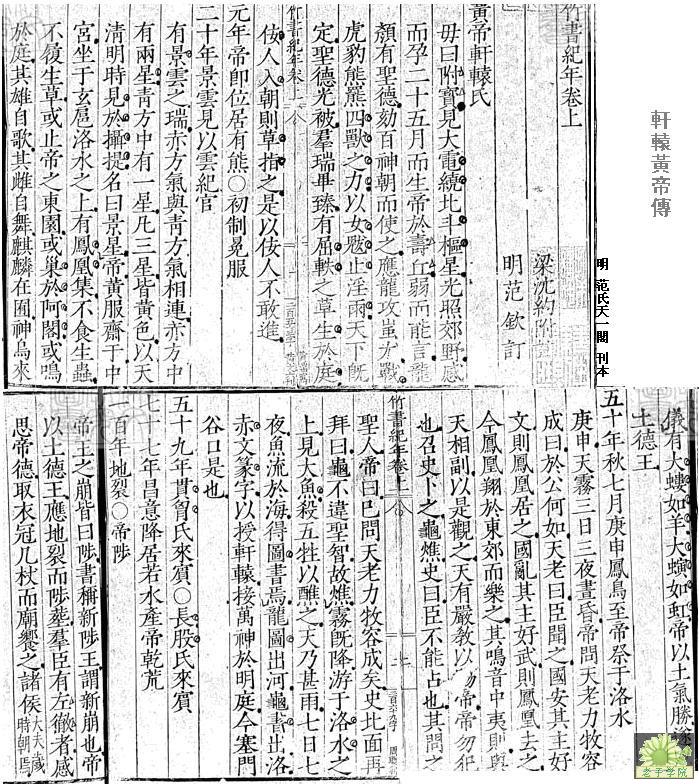 軒轅黃帝傳
明 范氏天一閣 刊本
竹書紀年卷上
梁沈約附
明范欽訂
黃帝軒轅氏
母曰附寶見大電繞北斗樞星光照郊野感
而孕二十五月而生帝於壽丘弱而能言龍
顏有聖德劾百神朝而使之應龍攻蚩尤戰
虎豹熊羆四獸之力以女魃止淫雨天下既
定聖德光被羣瑞畢臻有屈軼之草生於庭
竹書紀年卷上
佞人入朝則草指之是以佞人不敢進
元年帝即位居有熊〇初制冕服
二十年景雲見以雲紀官
有景雲之瑞赤方氣與青方氣相連赤方中
有兩星青方中有一星凡三星皆黃色以天
清明時見於攝提名曰景星帝黃服齋于中
宮坐于玄扈洛水之上有鳳凰集不食生蟲
不履生草或止帝之東園或巢於阿閣或鳴
於庭其雄自歌其雌自舞麒麟在囿神鳥來
儀有大螻如羊大螾如虹帝以土氣勝遂以
土德王
五十年秋七月庚申鳳鳥至帝祭于洛水
庚申天霧三日三夜晝昏帝問天老力牧容
成曰於公何如天老曰臣聞之國安其主好
文則鳳凰居之國亂其主好武則鳳凰去之
今鳳凰翔於東郊而樂之其鳴音中夷則與
天相副以是觀之天有嚴教以賜帝帝勿犯
也召史卜之龜燋史曰臣不能占也其問之
竹書紀年卷上
聖人帝曰已問天老力牧容成矣史北面再
拜曰龜不違聖智故燋霧既降游于洛水之
上見大魚殺五牲以醮之天乃甚雨七日七
夜魚流於海得圖書焉龍圖出河龜書出洛
赤文篆字以授軒轅接萬神於明庭今塞門
谷口是也
五十九年貫胷氏來賓〇長股氏來賓
七十七年昌意降居若水產帝乾荒
一百年地裂〇帝陟
帝王之崩皆曰陟書稱新陟王謂新崩也帝
以土德王應地裂而陟葬羣臣有左徹者感
思帝德取衣冠几杖而廟饗之諸侯大夫歲時朝焉
老子學院